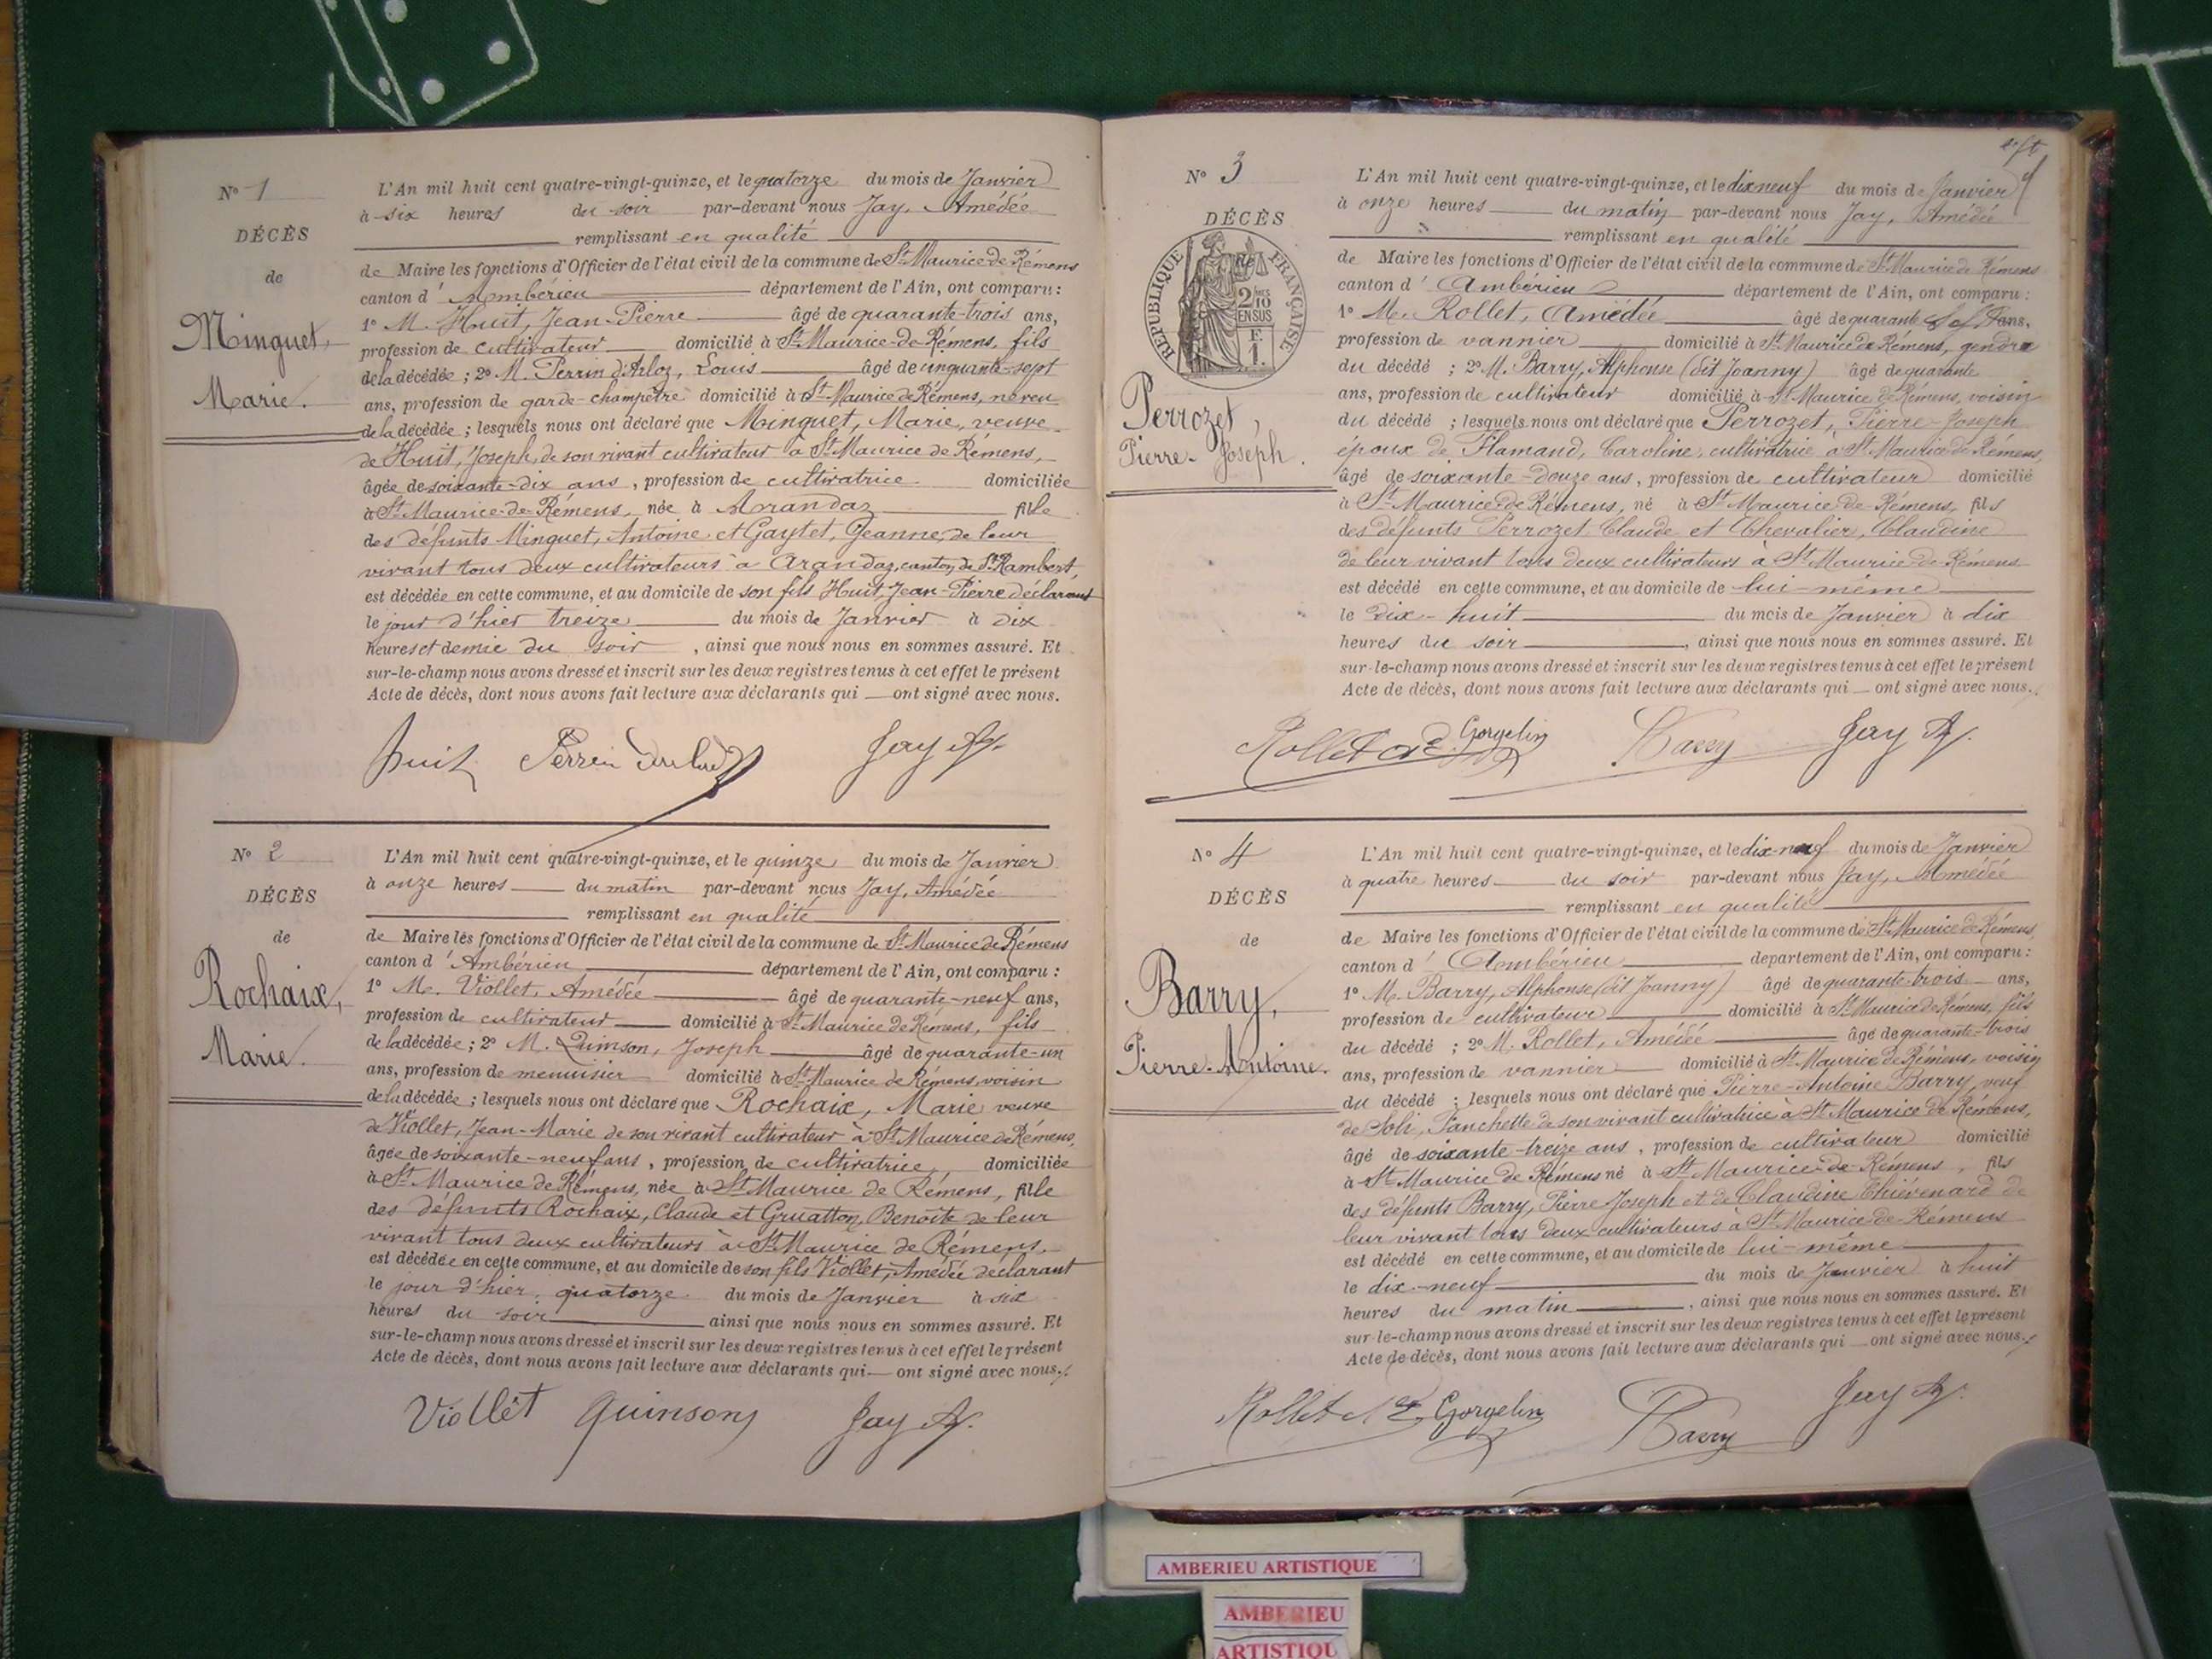 N° 1
DÉCÈS
de
Minguet,
Marie.
L'An mil huit cent quatre-vingt-quinze, et le quatorze du mois de Janvier
à six heures du soir par-devant nous Jay, Amédée
remplissant en qualité
de Maire les fonctions d'Officier de l'état civil de la commune de St Maurice de Rémens
canton d' Ambérieu département de l'Ain, ont comparu :
1° M. Huit, Jean-Pierre âgé de quarante-trois ans,
profession de cultivateur domicilié à St Maurice-de-Rémens, fils
de la décédée ; 2° M. Perrin d'Arloz, Louis âgé de cinquante-sept
ans, profession de garde-champêtre domicilié à St Maurice de Rémens, neveu
de la décédée ; lesquels nous ont déclaré que Minguet, Marie, veuve
de Huit, Joseph, de son vivant cultivateur à St Maurice de Rémens,
âgée de soixante-dix ans, profession de cultivatrice domiciliée
à St Maurice-de-Rémens, née à Arandaz fille
des défunts Minguet, Antoine et Gaytet, Jeanne, de leur
vivant tous deux cultivateurs à Arandaz, canton de St Rambert,
est décédée en cette commune, et au domicile de son fils Huit, Jean-Pierre déclarant
le jour d'hier treize du mois de Janvier à dix
heures et demie du soir, ainsi que nous nous en sommes assuré. Et
sur-le-champ nous avons dressé et inscrit sur les deux registres tenus à cet effet le présent
Acte de décès, dont nous avons fait lecture aux déclarants qui ont signé avec nous.
huit Perrin Jay A.
N° 2
DÉCÈS
de
Rochaix,
Marie.
L'An mil huit cent quatre-vingt-quinze, et le quinze du mois de Janvier
à onze heures du matin par-devant nous Jay, Amédée
remplissant en qualité
de Maire les fonctions d'Officier de l'état civil de la commune de St Maurice de Rémens
canton d' Ambérieu département de l'Ain, ont comparu :
1° M. Viollet, Amédée âgé de quarante-neuf ans,
profession de cultivateur domicilié à St Maurice de Rémens, fils
de la décédée ; 2° M. Quinson, Joseph âgé de quarante-un
ans, profession de menuisier domicilié à St Maurice de Rémens, voisin
de la décédée ; lesquels nous ont déclaré que Rochaix, Marie veuve
de Viollet, Jean-Marie de son vivant cultivateur à St Maurice de Rémens,
âgée de soixante-neuf ans, profession de cultivatrice, domiciliée
à St Maurice de Rémens, née à St Maurice de Rémens, fille
des défunts Rochaix, Claude et Gruatton, Benoîte de leur
vivant tous deux cultivateurs à St Maurice de Rémens,
est décédée en cette commune, et au domicile de son fils Viollet, Amédée déclarant
le jour d'hier, quatorze du mois de Janvier à six
heures du soir ainsi que nous nous en sommes assuré. Et
sur-le-champ nous avons dressé et inscrit sur les deux registres tenus à cet effet le présent
Acte de décès, dont nous avons fait lecture aux déclarants qui ont signé avec nous.
Viollet quinson Jay A.
N° 3
DÉCÈS
de
RÉPUBLIQUE FRANÇAISE
2/10
EN SUS
Perrozet,
Pierre-Joseph.
L'An mil huit cent quatre-vingt-quinze, et le dix neuf du mois de Janvier
à onze heures du matin par-devant nous Jay, Amédée
remplissant en qualité
de Maire les fonctions d'Officier de l'état civil de la commune de St Maurice de Rémens
canton d' Ambérieu département de l'Ain, ont comparu :
1° M. Rollet, Amédée âgé de quarante ans,
profession de vannier domicilié à St Maurice de Rémens, gendre
du décédé ; 2° M. Barry, Alphonse (dit Joanny) âgé de quarante
ans, profession de cultivateur domicilié à St Maurice de Rémens, voisin
du décédé ; lesquels nous ont déclaré que Perrozet, Pierre-Joseph
époux de Flamand, Caroline, cultivatrice à St Maurice de Rémens,
âgé de soixante-douze ans, profession de cultivateur domicilié
à St Maurice-de-Rémens, né à St Maurice-de-Rémens, fils
des défunts Perrozet Claude et Chevalier, Claudine
de leur vivant tous deux cultivateurs à St Maurice-de-Rémens
est décédé en cette commune, et au domicile de lui-même
le dix-huit du mois de Janvier à dix
heures du soir, ainsi que nous nous en sommes assuré. Et
sur-le-champ nous avons dressé et inscrit sur les deux registres tenus à cet effet le présent
Acte de décès, dont nous avons fait lecture aux déclarants qui ont signé avec nous.
Rollet Gorgelin Barry Jay A.
N° 4
DÉCÈS
de
Barry,
Pierre-Antoine.
L'An mil huit cent quatre-vingt-quinze, et le dix-neuf du mois de Janvier
à quatre heures du soir par-devant nous Jay, Amédée
remplissant en qualité
de Maire les fonctions d'Officier de l'état civil de la commune de St Maurice de Rémens,
canton d' Ambérieu département de l'Ain, ont comparu :
1° M. Barry, Alphonse (dit Joanny) âgé de quarante-trois ans,
profession de cultivateur domicilié à St Maurice de Rémens, fils
du décédé ; 2° M. Rollet, Amédée âgé de quarante-trois
ans, profession de vannier domicilié à St Maurice de Rémens, voisin
du décédé ; lesquels nous ont déclaré que Pierre-Antoine Barry, veuf
de Joli, Fanchette de son vivant cultivatrice à St Maurice de Rémens,
âgé de soixante-treize ans, profession de cultivateur domicilié
à St Maurice de Rémens né à St Maurice-de-Rémens, fils
des défunts Barry, Pierre Joseph et de Claudine Thiévenard de
leur vivant tous deux cultivateurs à St Maurice-de-Rémens
est décédé en cette commune, et au domicile de lui-même
le dix-neuf du mois de Janvier à huit
heures du matin, ainsi que nous nous en sommes assuré. Et
sur-le-champ nous avons dressé et inscrit sur les deux registres tenus à cet effet le présent
Acte de décès, dont nous avons fait lecture aux déclarants qui ont signé avec nous.
Rollet Gorgelin Barry Jay A.
AMBERIEU ARTISTIQUE
AMBERIEU
ARTISTIQU